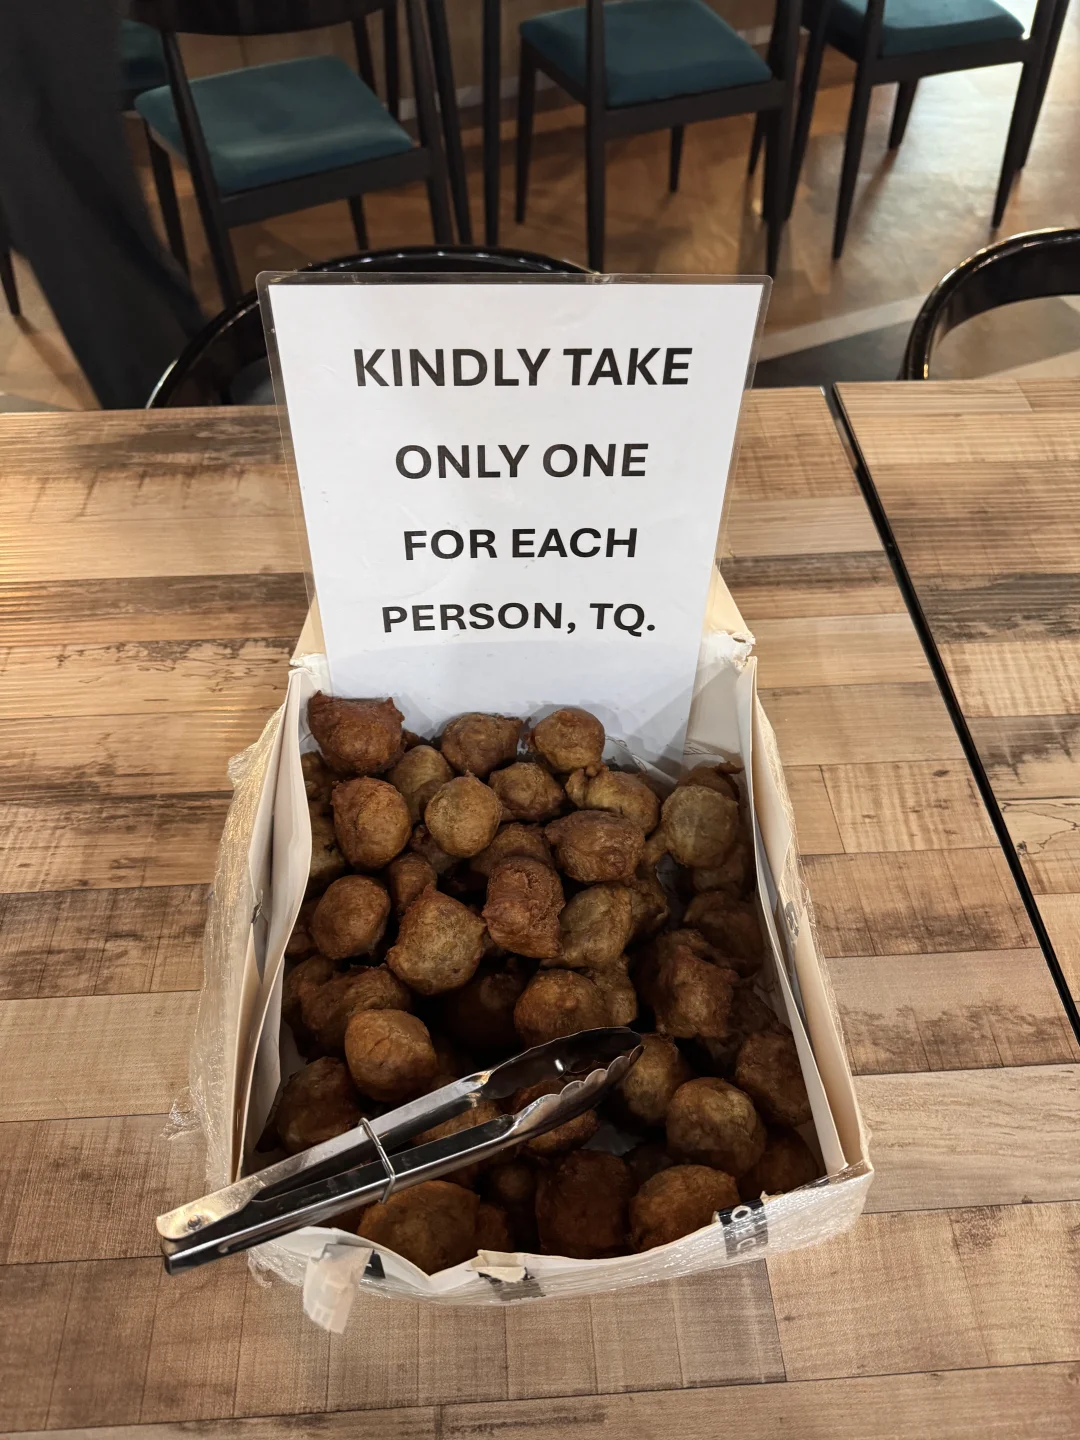 KINDLY TAKE
ONLY ONE
FOR EACH
PERSON, TQ.